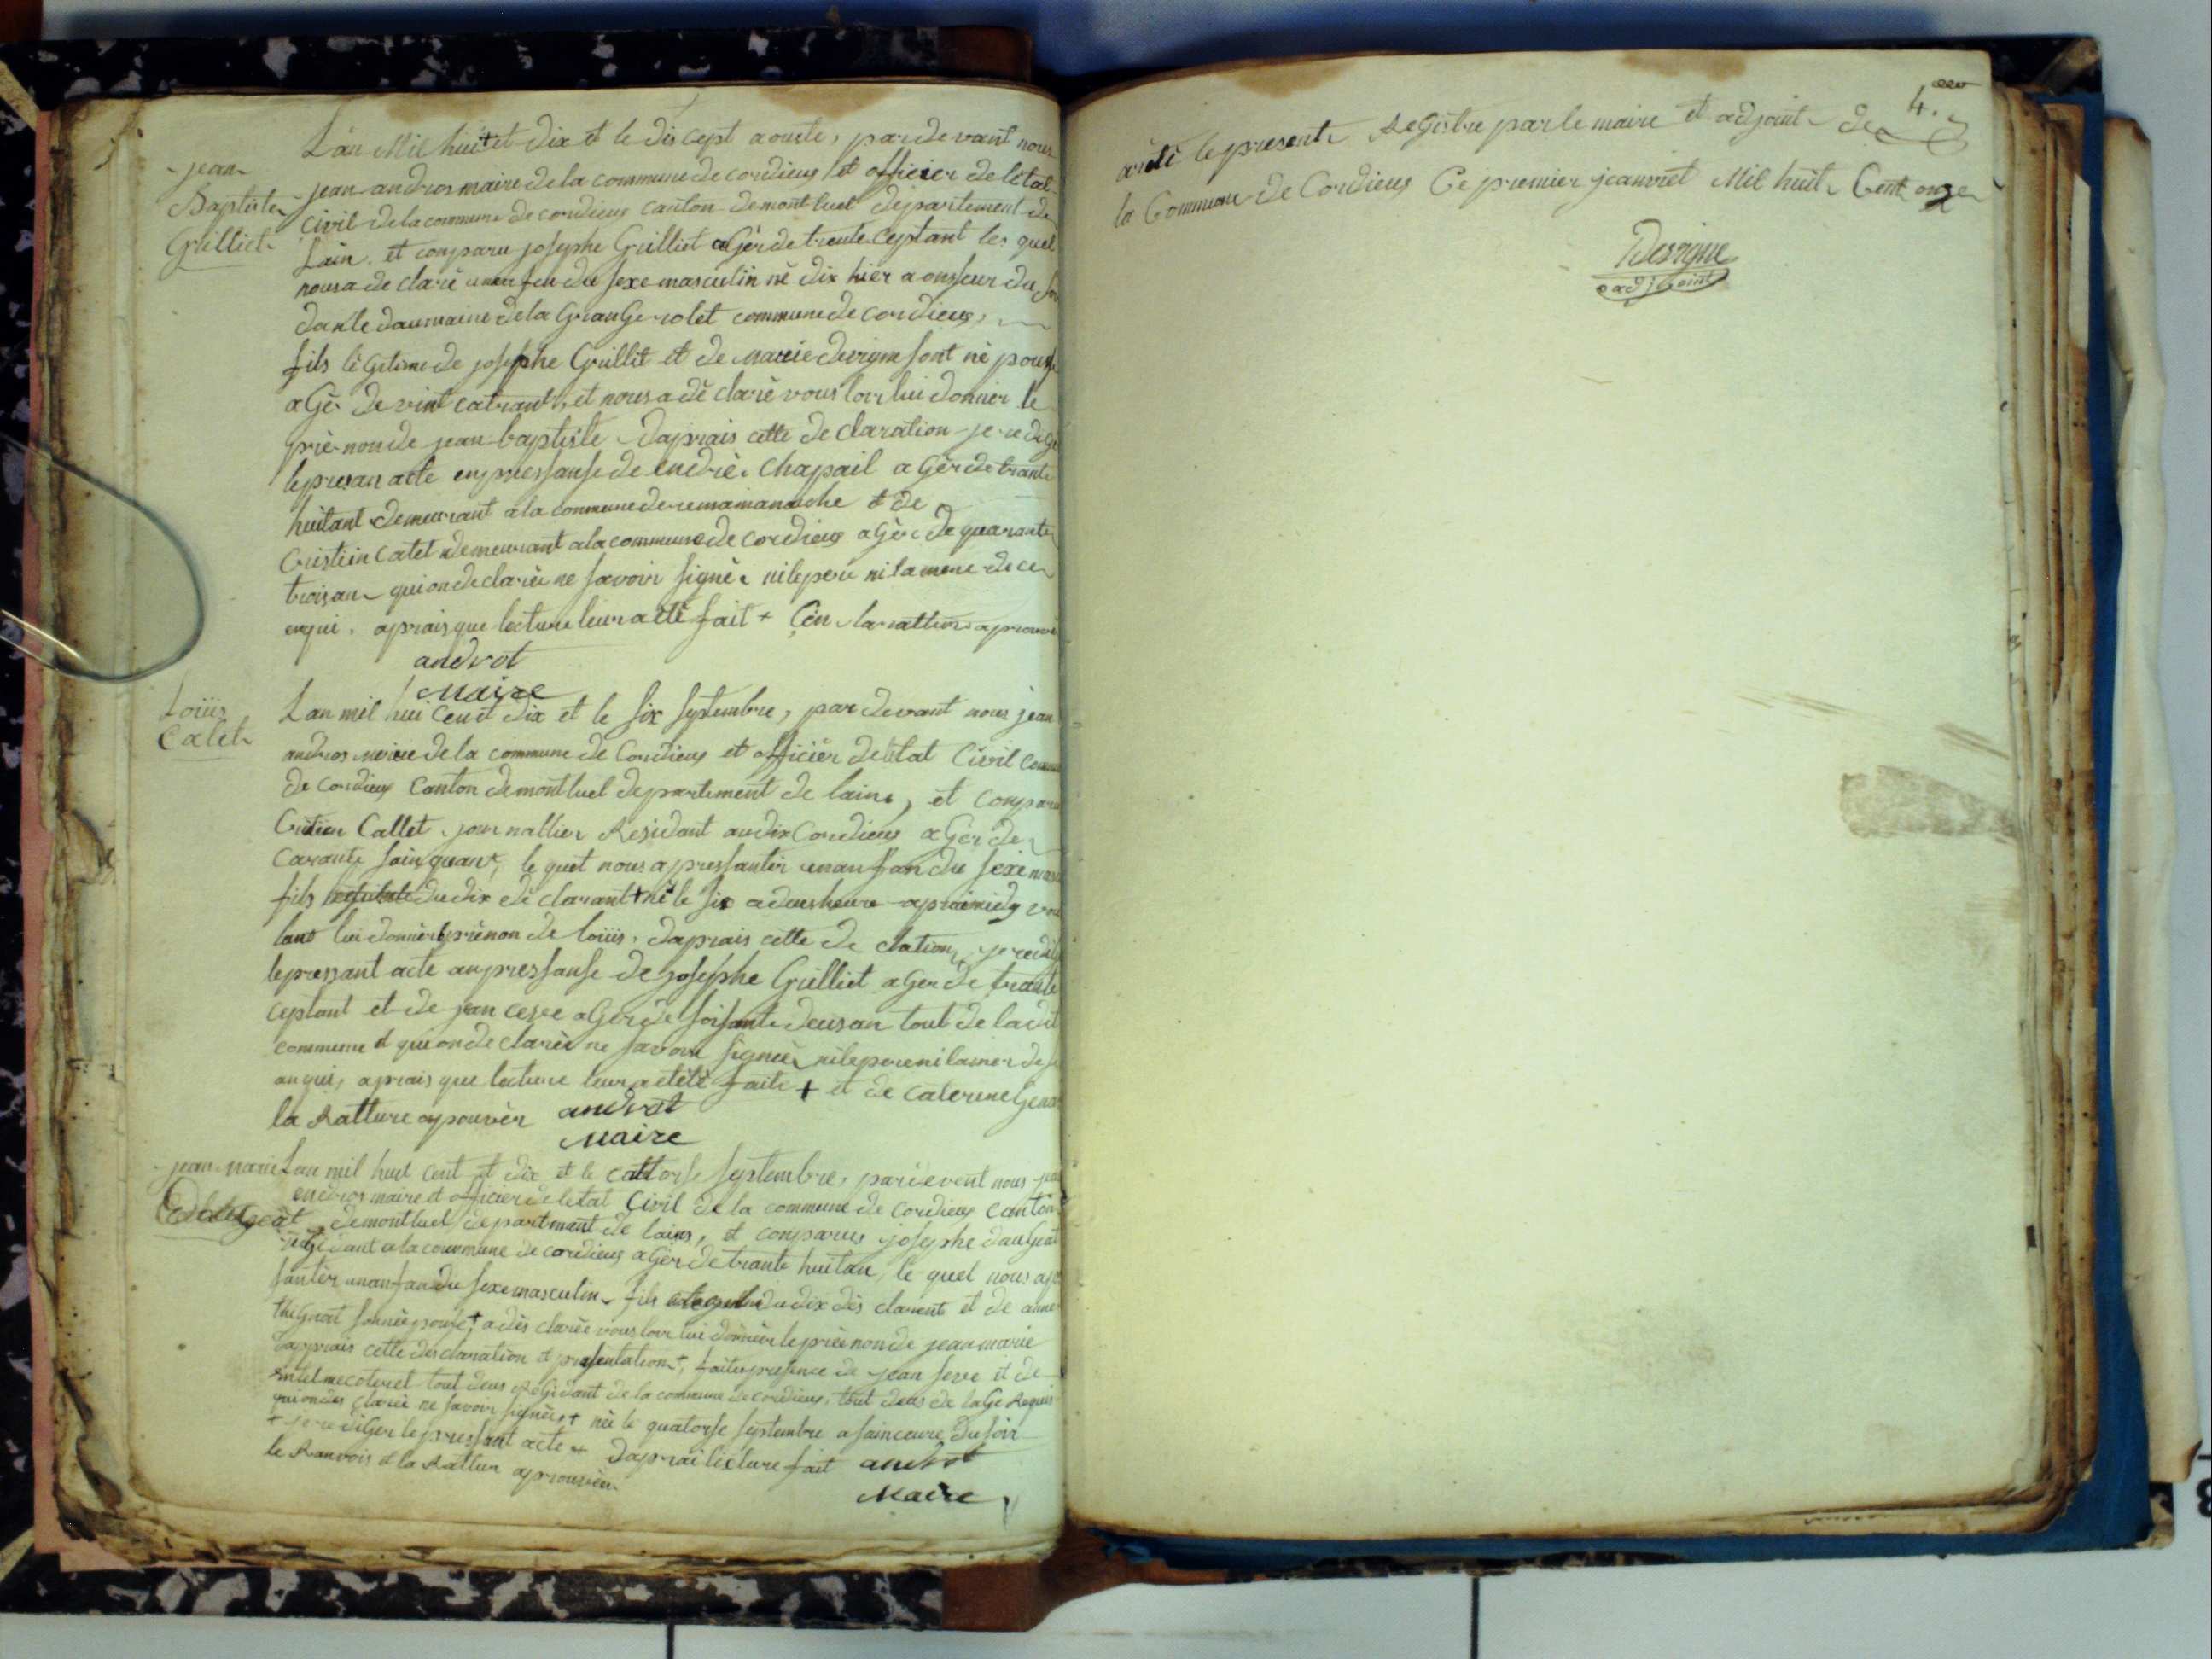 jean
Baptiste
Grilliet
L'an Mil huit + et dix et le dis cept aouste, par devant nous
jean andros maire de la commune de cordieus et officier de letat
civil de la commune de cordieus canton de montluel departement de
Lain, et conparu josephe Grilliet a Gér de trente ceptant le quel
nous a de claré unenfen du sexe masculin né dix hier a onseur du soi
dan le daumaine de la GranGe rolet commune de cordieus,
fils léGetime de josephe Grillit et de marie devigne sont né pouse
a Gé de vint catrant, et nous a dé claré vous loir lui donnér le
pré non de jean baptiste daprais cette de claration je re dige
le presan acte en pressanse de endré Chapail a Gér de trante
huitant demeurant a la commune de et de
Cristiin Catet demeurant a la commune de cordieus a Gér de quarante
trois an qui on declaréé ne savoir signé ni le peré ni la mere de ce
enqui, aprais que lecture leur a été fait + Cen la ratture aprouvé
androt
Maire
Loüis
Catet
Lan mil hui Cent et dix et le six septembre, par devant nous jean
andros maire de la commune de Cordieus et officiér de létat Civil comm
de cordieus Canton de montluel departement de lains, et conparu
Cristien Callet journallier Residant audix Cordieus a Gér de
Carante sainquant, le quel nous a pressantér unanfan du sexe mas
fils du dix dé clarant + né le six a deus heure apraimidy vou
lant lui donnér le prénon de loüis, daprais cette de clation, je redig
le pressant acte anpressanse de josephe Grilliet a Ger de trante
ceptant et de jean cerve a Ger de soisante deus an tout de ladit
commune et qui on de claréé ne savoir signéé ni le pere ni lamer de s
anqui, aprais que lecture leur a etété faite + et de caterine Gena
la Ratture apouvér androt
Maire
jean marie
dauGeat
Lan mil huit cent et dix et le cattorse septembre, pardevent nous jea
endros maire et officier de letat Civil de la commune de cordieus canton
de montluel departmant de lains, et conparus josephe dauGeat
reGidant a la commune de cordieus a Gér de trante huitan, le quel nous apr
santér unanfan du sexe masculin fils du dix dés clarent et de anne
thignat sonnée pouse + a dés clarée vous loir lui donnér le prénon de jean marie
dapprais cette désclaration et presentation + faite presence de jean serve et de
antelme coteret tout deus réGidant de la commune de cordieus, tout deus de laGe Requis
qui on dés claréé ne savoir signér + née le quatorse septembre a sainceure du soir
+ je re diGer le pressant acte + dapprai lécture fait androt
le Ranvois et la Rattur aprouvéé
Maire
4.
arété le present Registre par le maire et adjoint de
la Commune de Cordieus Ce premier jeanvret Mil huit Cent onze
Devigne
adjoint